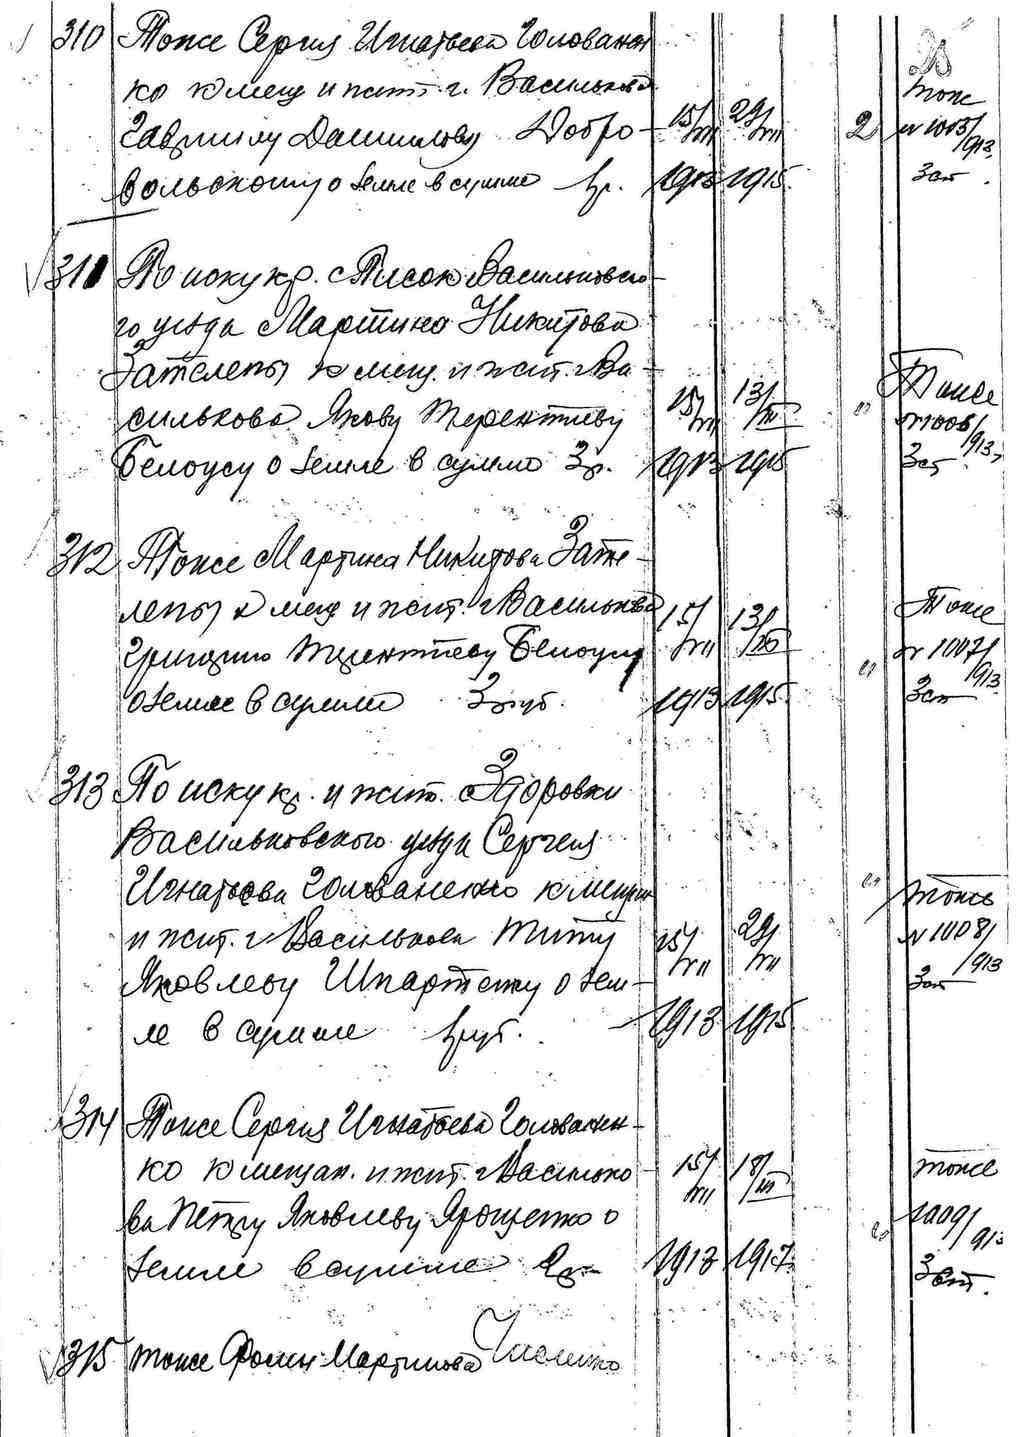 310 Тоже Сергия Игнатьева Голованен
ко к мещ и жит. г. Василькова
Гавриилу Даниилову Добро- 15/VII 29/VII 2 Тоже № 1005/913
вольскому о земле в сумме р. 1913 1915 3 ст.
311 По иску кр. с Плесок Васильковско-
го уезда Мартина Никитова
Затслепы к мещ. и жит. г Ва-
силькова Якову Терентиеву 15/VII 13/III " Тоже № 1006/913
Белоусу о земле в сумме 3 р. 1913 1915 3 ст
312 Тоже Мартина Никитова Затс-
лепы к мещ и жит. г Василькова 15/VII 13/III Тоже
Григорию Терентиеву Белоусу " № 1007/913
о земле в сумме 3 руб. 1913 1915 3 ст
313 По иску кр. и жит. с Здоровки
Васильковского уезда Сергея
Игнатьева Голованенко к мещан " тоже
и жит. г Василькова Титу 15/VII 29/VII № 1008/913
Яковлеву Шпартому о зем- 3 ст
ле в сумме руб. 1913 1915
314 Тоже Сергия Игнатьева Голованен-
ко к мещан. и жит. г Василько- 15/VII 18/III тоже
ва Петру Яковлеву Ярошенко о " 1009/913
земле в сумме р. 1913 1917 3 ст.
315 тоже Фомы Мартинова Численко